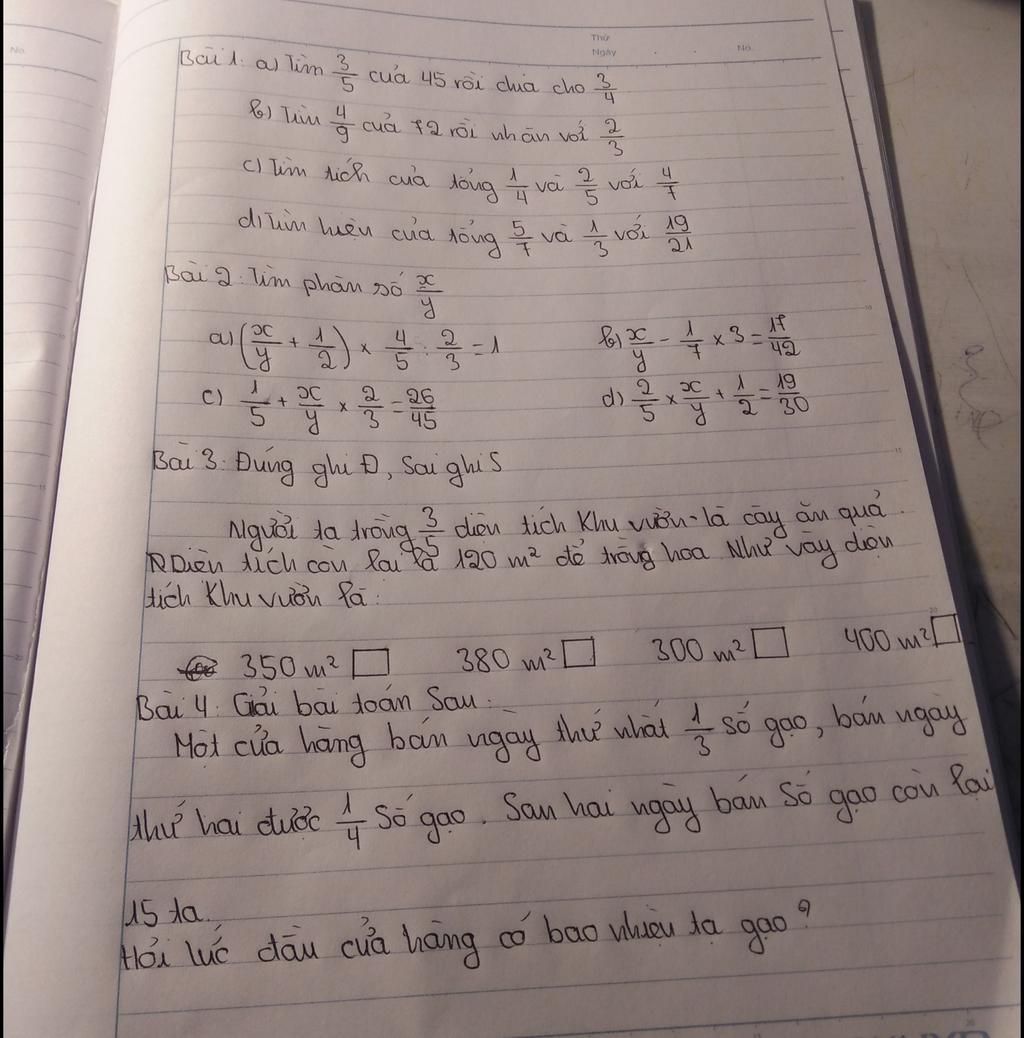 Thứ
Ngày . . No.
No.
Bài 1: a) Tìm 3/5 của 45 rồi chia cho 3/4
b) Tìm 4/9 của 72 rồi nhân với 2/3
c) Tìm tích của tổng 1/4 và 2/5 với 4/7
d) Tìm hiệu của tổng 5/7 và 1/3 với 19/21
Bài 2: Tìm phân số x/y
a) (x/y + 1/2) × 4/5 : 2/3 = 1 b) x/y - 1/7 × 3 = 17/42
c) 1/5 + x/y × 2/3 = 26/45 d) 2/5 × x/y + 1/2 = 19/30
Bài 3: Đúng ghi Đ, Sai ghi S
Người ta trồng 3/5 diện tích Khu vườn là cây ăn quả.
Diện tích còn lại là 120 m² để trồng hoa Như vậy diện
tích Khu vườn là:
350 m² □ 380 m² □ 300 m² □ 400 m² □
Bài 4: Giải bài toán Sau:
Một cửa hàng bán ngày thứ nhất 1/3 số gạo, bán ngày
thứ hai được 1/4 Số gạo. Sau hai ngày bán Số gạo còn lại
15 tạ.
Hỏi lúc đầu cửa hàng có bao nhiêu tạ gạo?